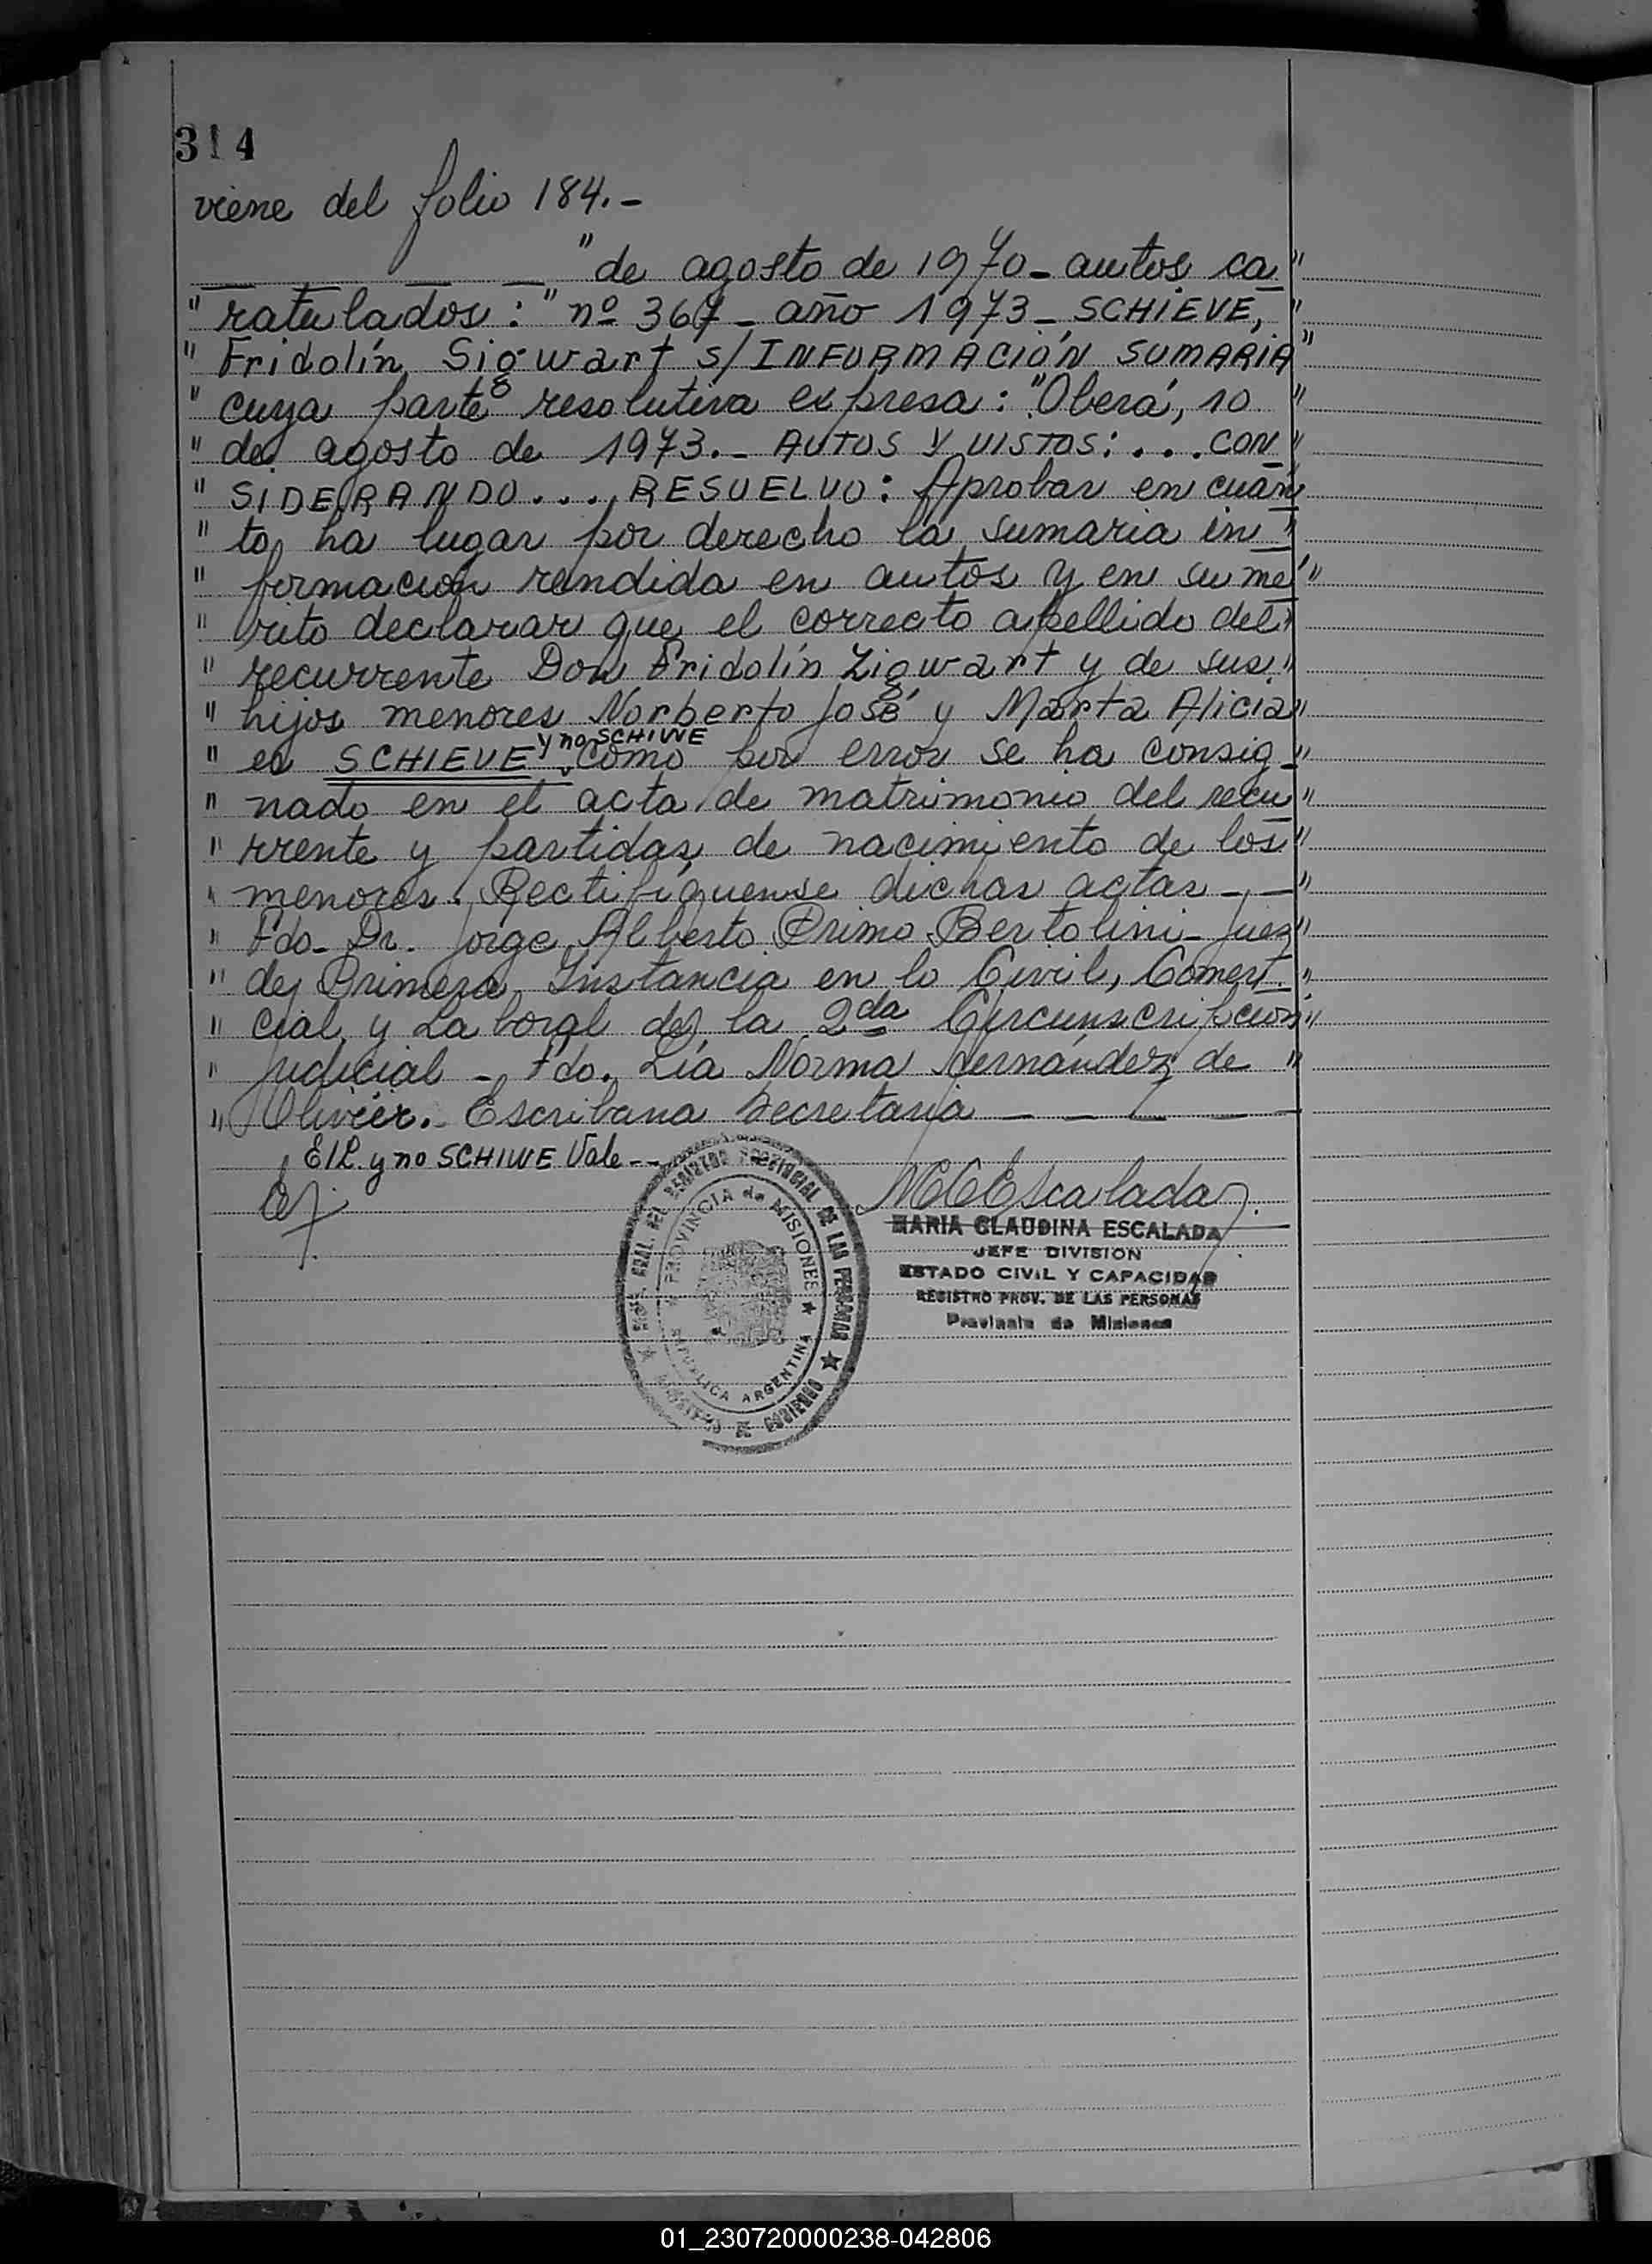 314
viene del folio 184.-
"de agosto de 1970- autos ca "
" ratulados: "nº 367- año 1973- SCHIEVE, "
" Fridolín Sigwart s/INFORMACIÓN SUMARIA "
" cuya parte resolutiva expresa: "Oberá, 10 "
" de agosto de 1973.- AUTOS Y VISTOS: ... CON "
" SIDERANDO..., RESUELVO: Aprobar en cuan
" to ha lugar por derecho la sumaria in "
" formación rendida en autos y en su mé "
" rito declarar que el correcto apellido del "
" recurrente Don Fridolín Zigwart y de sus "
" hijos menores Norberto José y Marta Alicia "
y no SCHIWE
" es SCHIEVE como por error se ha consig- "
" nado en el acta de matrimonio del recu "
" rrente y partidas de nacimiento de los "
" menores. Rectifíquense dichas actas - - "
" Fdo- Dr. Jorge Alberto Primo Bertolini- Juez "
" de Primera Instancia en lo Civil, Comer "
" cial y Laboral de la 2da Circunscripción "
" Judicial - Fdo. Lía Norma Hernández de "
" Olivier. Escribana Secretaria - - - -
E/L. y no SCHIWE Vale--
MCEscalada
MARIA CLAUDINA ESCALADA
JEFE DIVISION
ESTADO CIVIL Y CAPACIDAD
REGISTRO PROV. DE LAS PERSONAS
Provincia de Misiones
GRAL. DEL REGISTRO PROVINCIAL DE LAS PERSONAS ★
DE GOBIERNO
★ PROVINCIA de MISIONES ★
REPUBLICA ARGENTINA
01_230720000238-042806